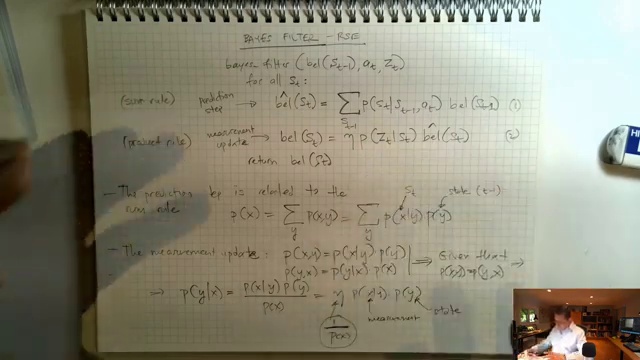 BAYES FILTER - RSE
bayes filter (bel(S_{t-1}), a_t, Z_t)
for all S_t:
(sum rule) prediction step → b̂el(S_t) = Σ_{S_{t-1}} p(S_t|S_{t-1}, a_t) bel(S_{t-1}) (1)
(product rule) measurement update → bel(S_t) = η p(Z_t|S_t) b̂el(S_t) (2)
return bel(S_t)
- The prediction step is related to the
sum rule p(x) = Σ_y p(x,y) = Σ_y p(x|y) p(y) S_t state (t-1)
- The measurement update: p(x,y) = p(x|y) p(y) ⟹ Given that →
p(y,x) = p(y|x) p(x) p(x,y) = p(y,x)
⟹ p(y|x) = p(x|y) p(y) / p(x) = η p(x|y) · p(y)
measurement state
1 / p(x)
HI